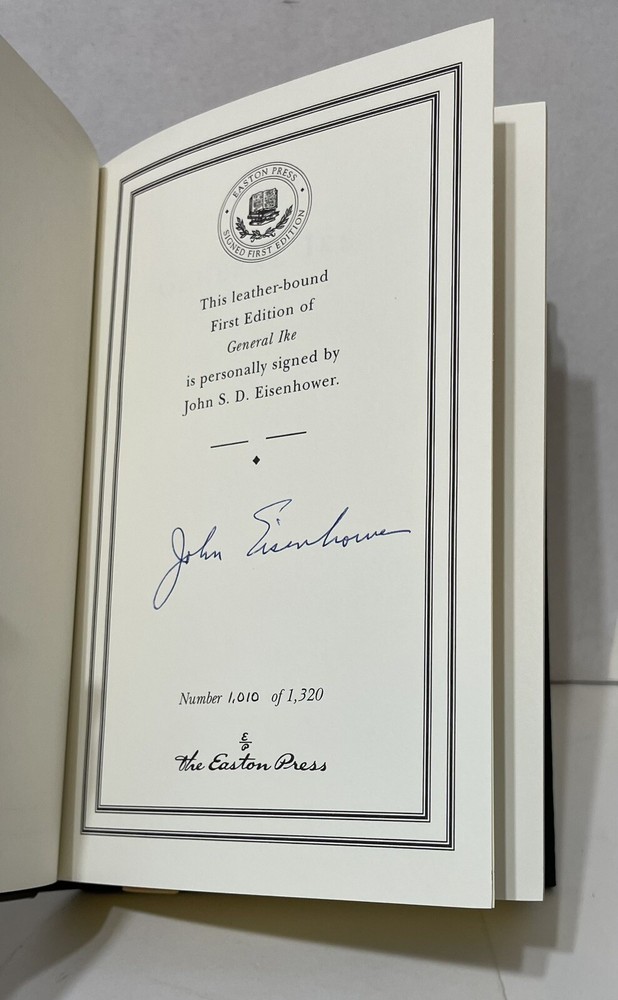 EASTON PRESS
SIGNED FIRST EDITION
This leather-bound
First Edition of
General Ike
is personally signed by
John S. D. Eisenhower.
John Eisenhower
Number 1,010 of 1,320
E
P
the Easton Press